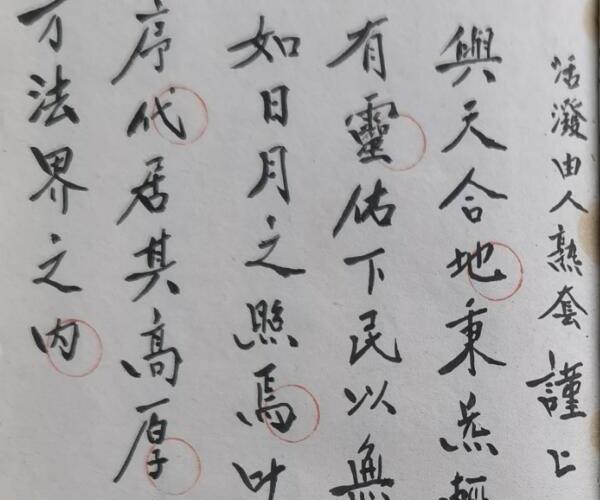 活潑由人熟套 謹上
與天合地秉炁輕
有靈佑下民以無
如日月之照焉叶
序代居其高厚
方法界之内